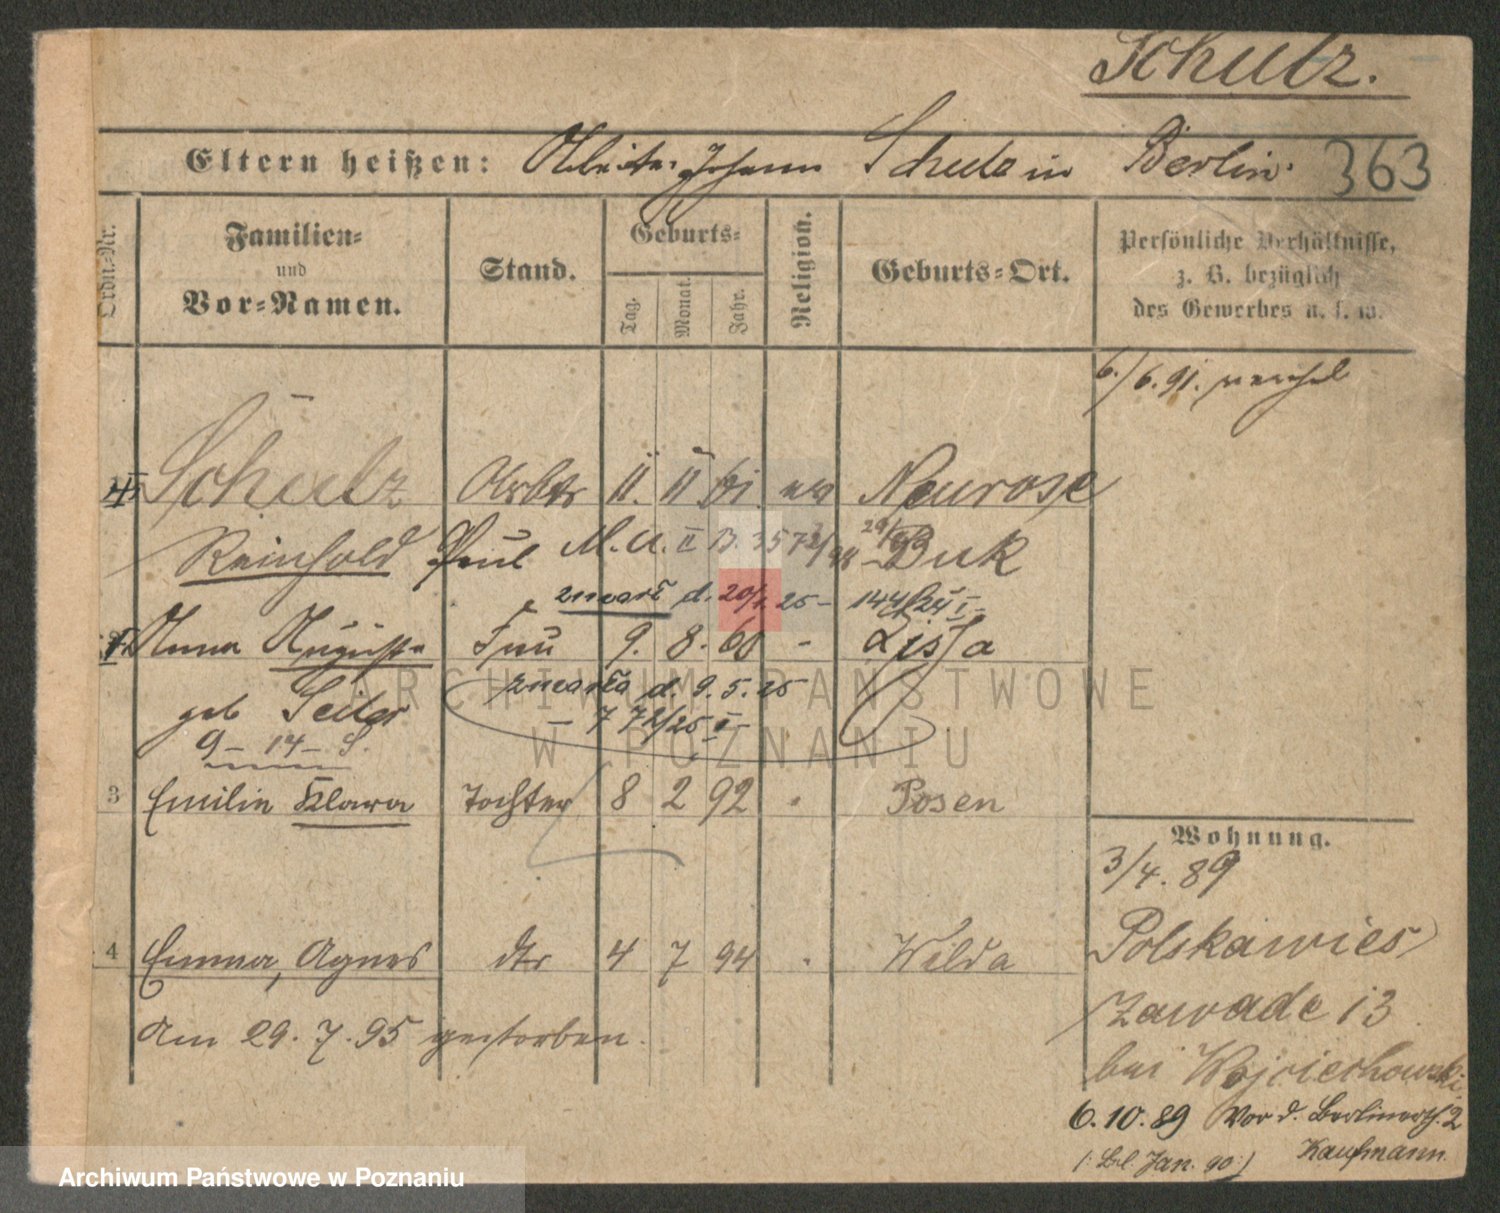 Schulz.
Eltern heißen: Arbeiter Johann Schulz in Berlin.
363
Ordn.-Nr.
Familien-
und
Vor-Namen.
Stand.
Geburts-
Tag.
Monat.
Jahr.
Religion.
Geburts-Ort.
Persönliche Verhältnisse,
z. B. bezüglich
des Gewerbes u. s. w.
6./6.91.
Schulz Arbtr 11. 11 61. ev Neurose
Reinhold Paul M.U. II B. 3573/98 Buk
zmarł d. 20/1 25 - 144/24 I -
Anna Auguste Frau 9. 8. 60 - Lissa
geb Seiler zmarła d. 9.5.25
- 7 72/25 I -
9 - 14 - S.
3 Emilie Klara Tochter 8 2 92 " Posen
Wohnung.
3/4. 89
4 Emma, Agnes dtr 4 7 94 " Wilda
Polskawies
Zawade 13
Am 29. 7. 95 gestorben.
bei Wojciechowski
6.10.89 Vor d. Berlinerth. 2
Kaufmann
(: Bel. Jan. 90 :)
ARCHIWUM PAŃSTWOWE
W POZNANIU
Archiwum Państwowe w Poznaniu